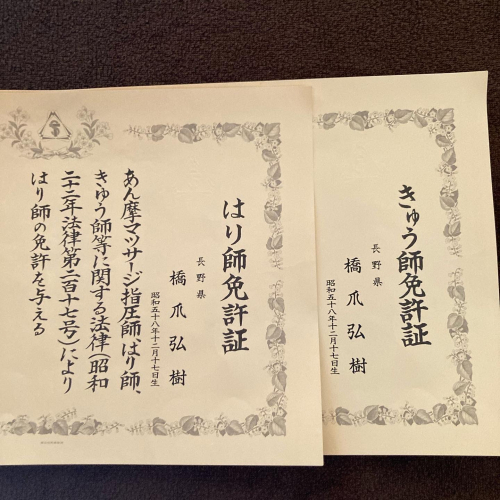 はり師免許証
長野県
橋爪弘樹
昭和五十八年十二月十七日生
あん摩マツサージ指圧師、はり師、
きゆう師等に関する法律(昭和
二十二年法律第二百十七号)により
はり師の免許を与える
きゅう師免許証
長野県
橋爪弘樹
昭和五十八年十二月十七日生